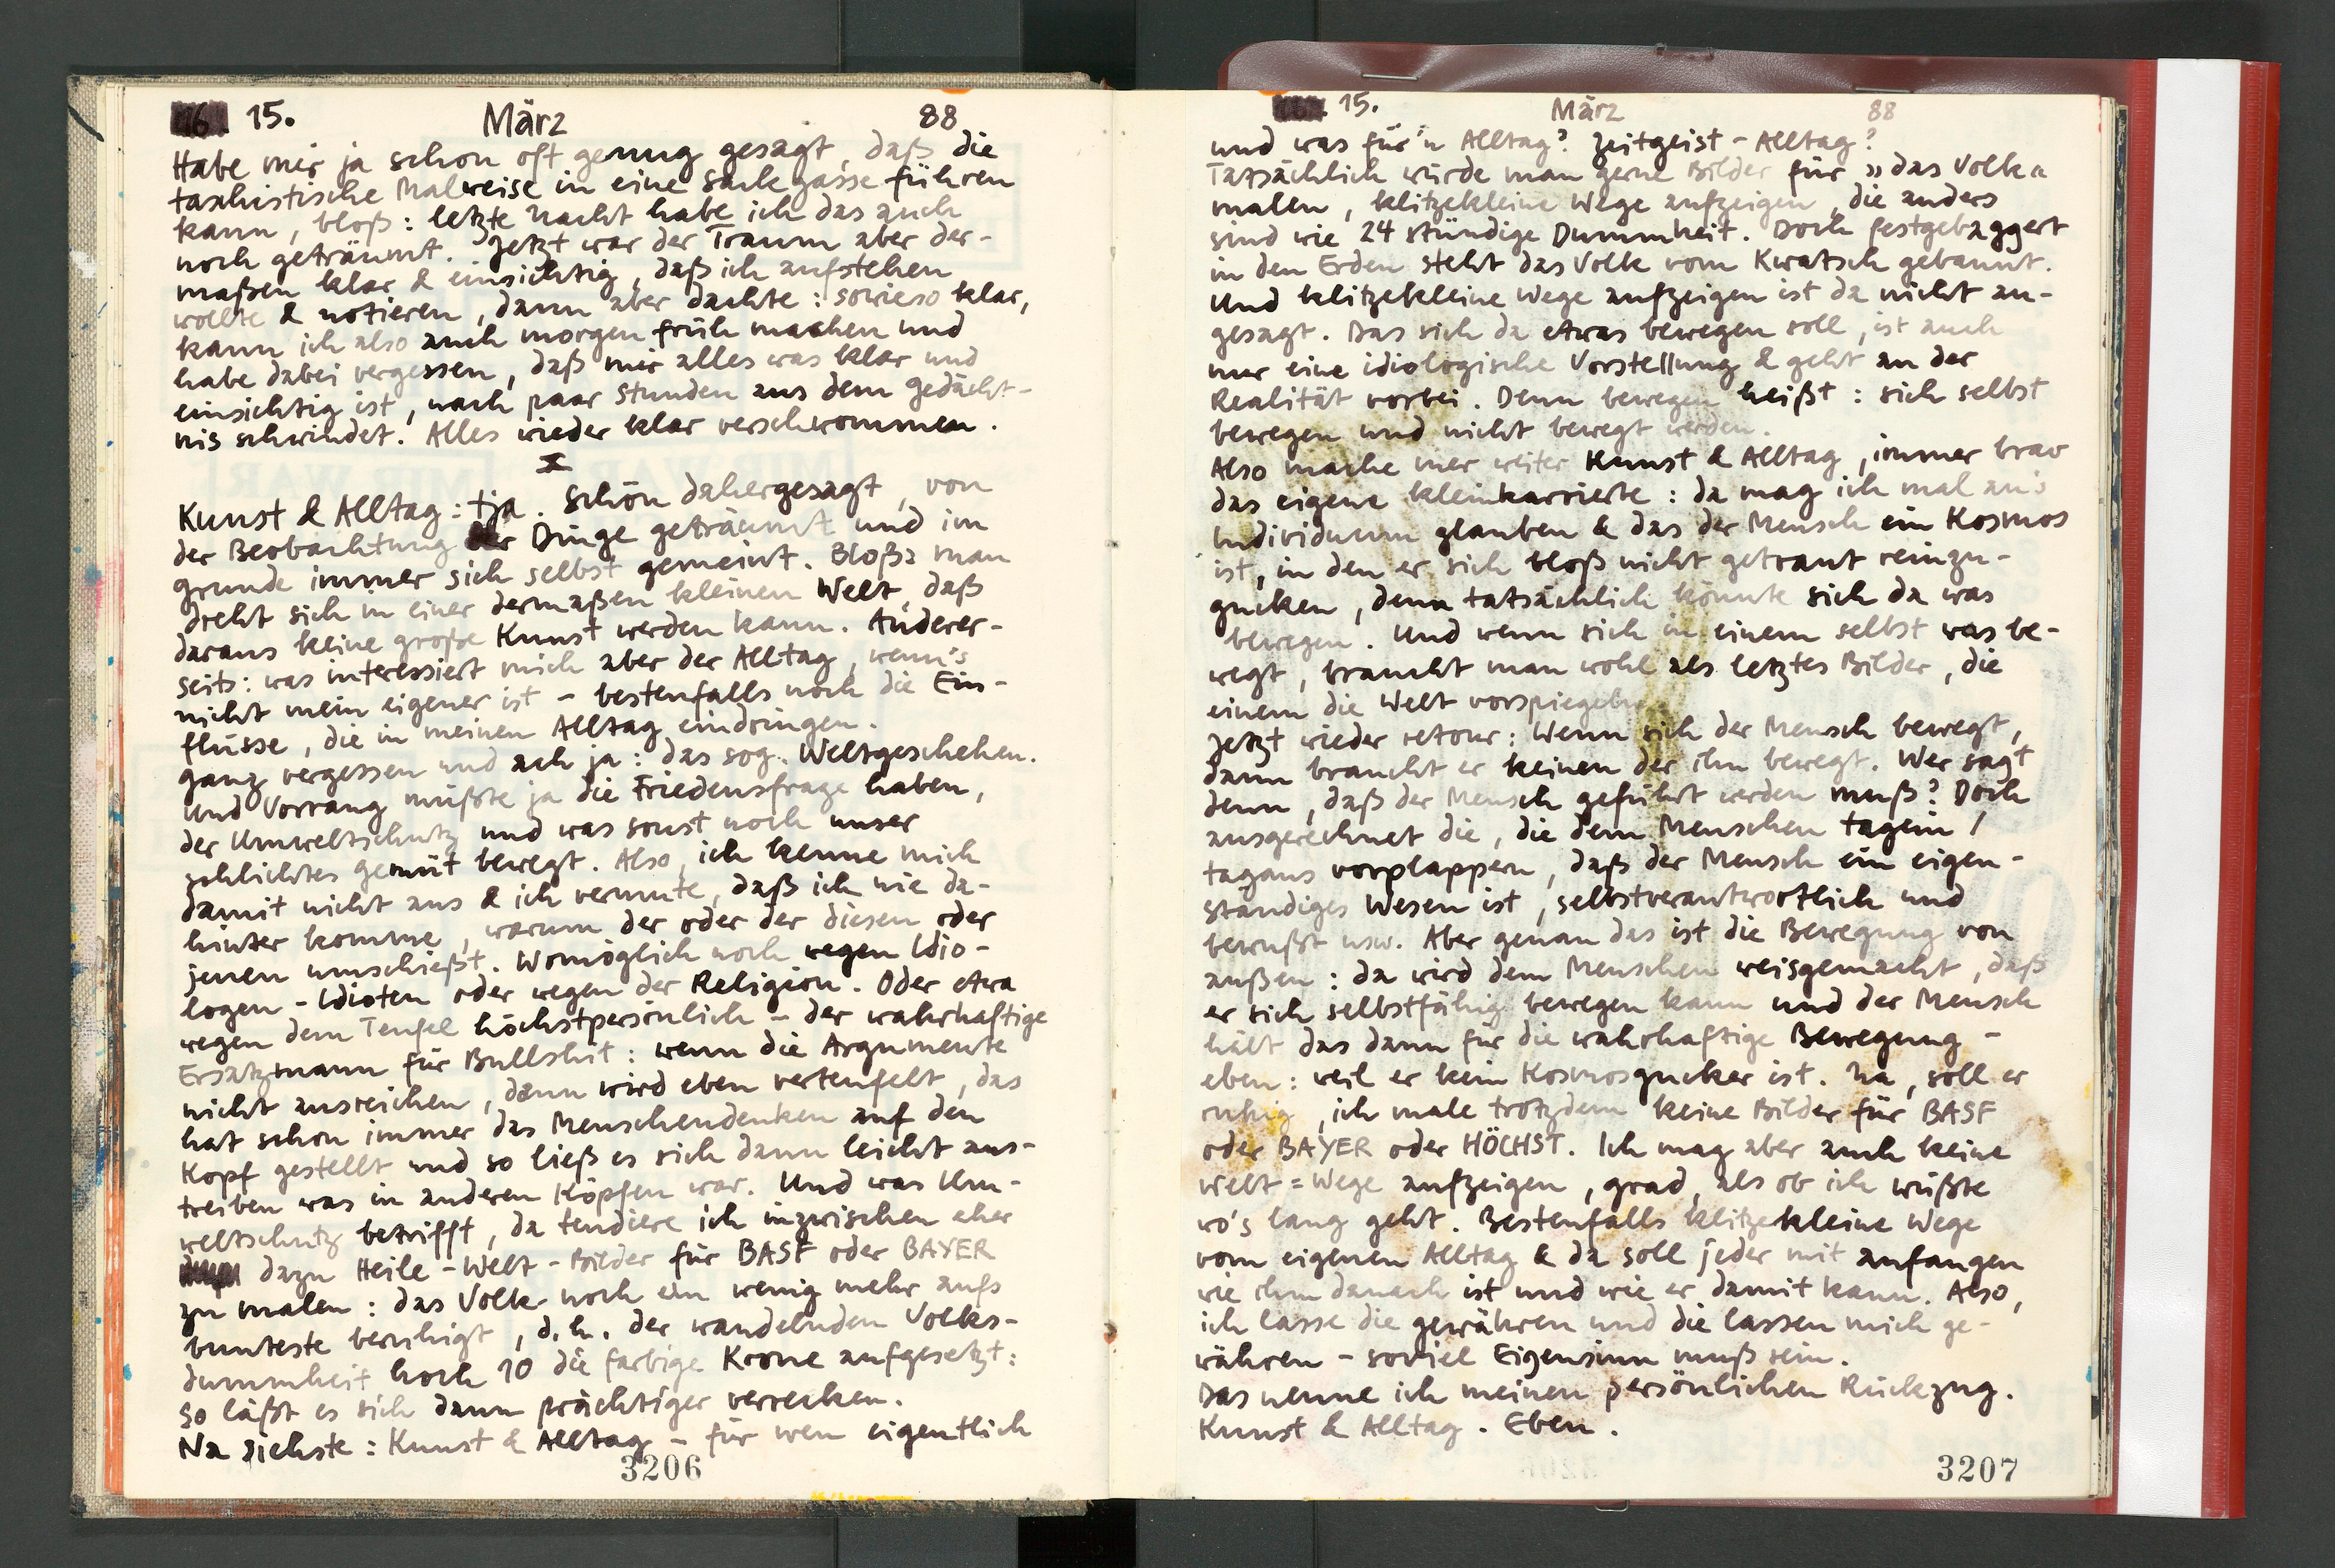 16. 15. März 88
Habe mir ja schon oft genug gesagt, daß die
taschistische Malweise in eine Sackgasse führen
kann, bloß: letzte Nacht habe ich das auch
noch geträumt. Jetzt war der Traum aber der-
maßen klar & einsichtig, daß ich aufstehen
wollte & notieren, dann aber dachte: sowieso klar,
kann ich also auch morgen früh machen und
habe dabei vergessen, daß mir alles was klar und
einsichtig ist, nach paar Stunden aus dem Gedächt-
nis schwindet. Alles wieder klar verschwommen.
X
Kunst & Alltag: tja. Schön dahergesagt, von
der Beobachtung der Dinge geträumt und im
grunde immer sich selbst gemeint. Bloß: man
dreht sich in einer dermaßen kleinen Welt, daß
daraus keine große Kunst werden kann. Anderer-
seits: was interessiert mich aber der Alltag, wenn's
nicht mein eigener ist - bestenfalls noch die Ein-
flüsse, die in meinen Alltag eindringen.
ganz vergessen und ach ja: das sog. Weltgeschehen.
Und Vorrang müßte ja die Friedensfrage haben,
der Umweltschutz und was sonst noch unser
schlichtes Gemüt bewegt. Also, ich kenne mich
damit nicht aus & ich vermute, daß ich nie da-
hinter komme, warum der oder der diesen oder
jenen umschießt. Womöglich noch wegen Idio-
logen - Idioten oder wegen der Religion. Oder etwa
wegen dem Teufel höchstpersönlich - der wahrhaftige
Ersatzmann für Bullshit: wenn die Argumente
nicht ausreichen, dann wird eben verteufelt, das
hat schon immer das Menschendenken auf den
Kopf gestellt und so ließ es sich dann leicht aus-
treiben was in anderen Köpfen war. Und was Um-
weltschutz betrifft, da tendiere ich inzwischen eher
dazu Heile-Welt-Bilder für BASF oder BAYER
zu malen: das Volk noch ein wenig mehr aufs
bunteste beruhigt, d.h. der wandelnden Volks-
dummheit hoch 10 die farbige Krone aufgesetzt:
so läßt es sich dann prächtiger verrecken.
Na siehste: Kunst & Alltag - für wen eigentlich
3206
16. 15. März 88
und was für'n Alltag? Zeitgeist-Alltag?
Tatsächlich würde man gerne Bilder für »das Volk«
malen, klitzekleine Wege aufzeigen, die anders
sind wie 24 stündige Dummheit. Doch festgebaggert
in den Erden steht das Volk vom Kwatsch gebannt.
Und klitzekleine Wege aufzeigen ist da nicht an-
gesagt. Das sich da etwas bewegen soll, ist auch
nur eine idiologische Vorstellung & geht an der
Realität vorbei. Denn bewegen heißt: sich selbst
bewegen und nicht bewegt werden.
Also mache mer weiter Kunst & Alltag, immer brav
das eigene kleinkarrierte: da mag ich mal an's
Individuum glauben & das der Mensch ein Kosmos
ist, in den er sich bloß nicht getraut reinzu-
gucken, denn tatsächlich könnte sich da was
bewegen. Und wenn sich in einem selbst was be-
wegt, braucht man wohl als letztes Bilder, die
einem die Welt vorspiegeln.
Jetzt wieder retour: Wenn sich der Mensch bewegt,
dann braucht er keinen der ihn bewegt. Wer sagt
denn, daß der Mensch geführt werden muß? Doch
ausgerechnet die, die dem Menschen tagein /
tagaus vorplappern, daß der Mensch ein eigen-
ständiges Wesen ist, selbstverantwortlich und
bewußt usw. Aber genau das ist die Bewegung von
außen: da wird dem Menschen weisgemacht, daß
er sich selbstfähig bewegen kann und der Mensch
hält das dann für die wahrhaftige Bewegung -
eben: weil er kein Kosmosgucker ist. Na, soll er
ruhig, ich male trotzdem keine Bilder für BASF
oder BAYER oder HÖCHST. Ich mag aber auch keine
Welt=Wege aufzeigen, grad, als ob ich wüßte
wo's lang geht. Bestenfalls klitzekleine Wege
vom eigenen Alltag & da soll jeder mit anfangen
wie ihm danach ist und wie er damit kann. Also,
ich lasse die gewähren und die lassen mich ge-
währen - soviel Eigensinn muß sein.
Das nenne ich meinen persönlichen Rückzug.
Kunst & Alltag. Eben.
3207